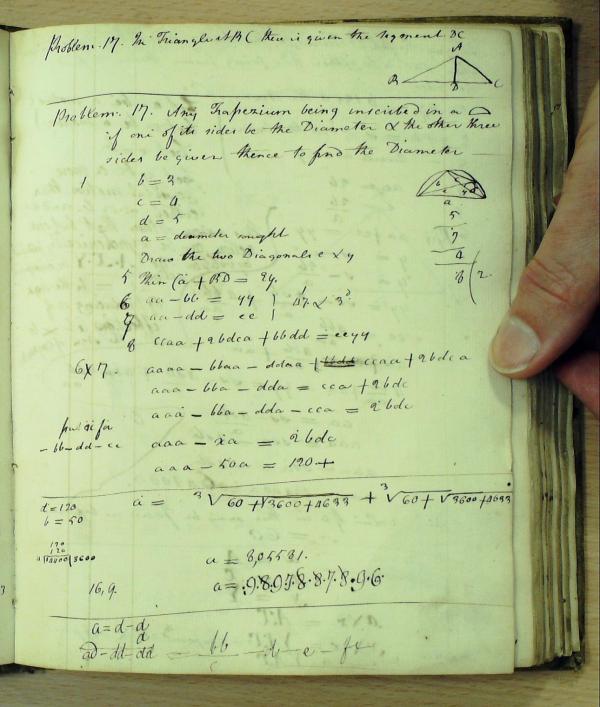 Problem. 17. In Triangle ABC there is given the segment DC
A
B D C
Problem. 17. Any Trapezium being inscribed in a
if one of its sides be the Diameter & the other three
sides be given thence to find the Diameter
1 b = 3
c = 4
d = 5
a = diameter sought
Draw the two Diagonals e & y
5 Then ca + bd = ey
6 aa - bb = yy
7 aa - dd = ee
47 & 3
8 ccaa + 2bdca + bbdd = eeyy
6 x 7. aaaa - bbaa - ddaa + ccaa + 2bdca
aaa - bba - dda = cca + 2bdc
aaa - bba - dda - cca = 2bdc
put x for
- bb - dd - cc
aaa - xa = 2bdc
aaa - 50a = 120 +
a
5
7
4
8 ( 2.
d = 120
b = 50
a = 3√60 + √3600 + 4633 + 3√60 + √3600 + 4633
120
120
3600
a = 8,05581.
16,9.
a = d - d
d
ad - dd dd
bb